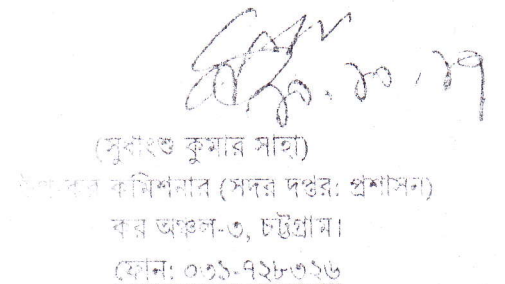 ২০.১০.১৭
(সুধাংশু কুমার সাহা)
উপ-কর কমিশনার (সদর দপ্তর: প্রশাসন)
কর অঞ্চল-৩, চট্টগ্রাম।
ফোন: ০৩১-৭২৮৩২৬